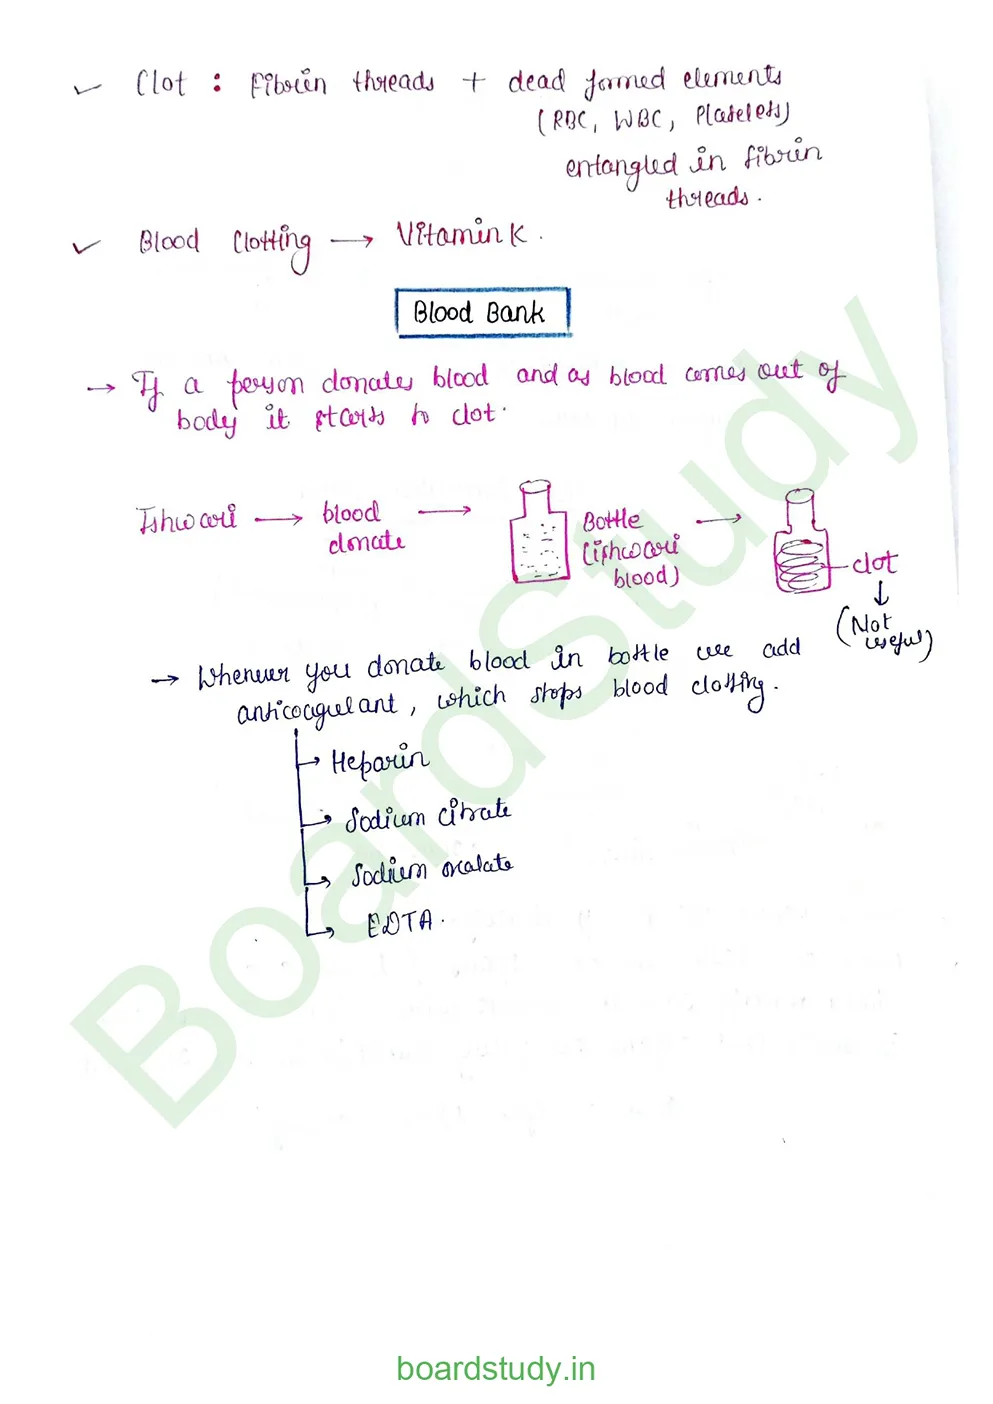 ✓ Clot : Fibrin threads + dead formed elements
(RBC, WBC, Platelets)
entangled in fibrin
threads.
✓ Blood Clotting → Vitamin K.
Blood Bank
→ If a person donates blood and as blood comes out of
body it starts to clot.
Ishwari → blood donate → Bottle (ishwari blood) → clot
↓
(Not useful)
→ Whenever you donate blood in bottle we add
anticoagulant, which stops blood clotting.
→ Heparin
→ Sodium citrate
→ Sodium oxalate
→ EDTA.
BoardStudy
boardstudy.in